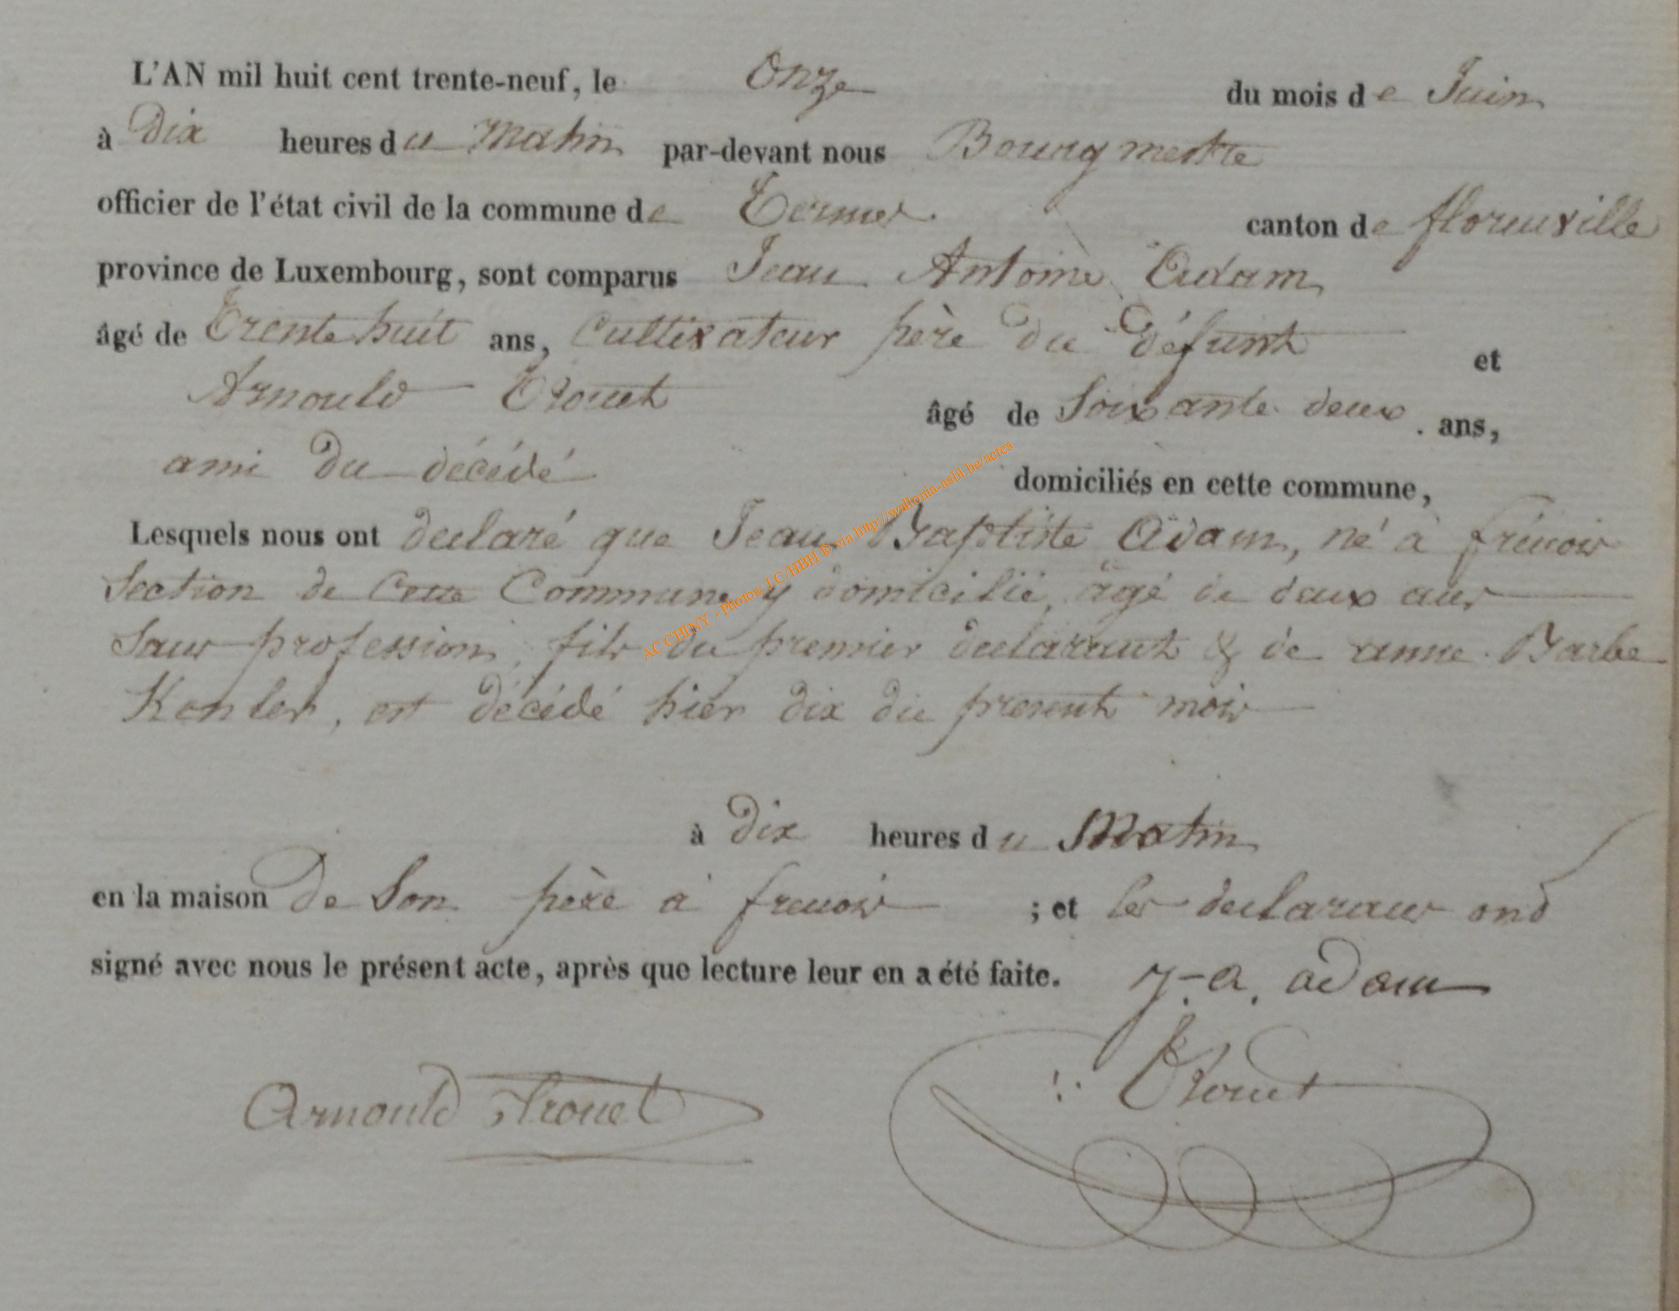 L'AN mil huit cent trente-neuf, le onze du mois de Juin
à Dix heures du Matin par-devant nous Bourgmestre
officier de l'état civil de la commune de Termes canton de florenville
province de Luxembourg, sont comparus Jean Antoine Adam
âgé de Trente huit ans, Cultivateur père du défunt et
Arnould Trouet âgé de Soixante deux ans,
ami du décédé domiciliés en cette commune,
Lesquels nous ont declaré que Jean Baptiste Adam, né à frénois
Section de Cette Commune y domicilié, agé de deux ans
Sans profession, fils du premier declarant & de anne Barbe
est décédé hier dix du présent mois
à dix heures du Matin
en la maison de Son père a frenois ; et les declarans ond
signé avec nous le présent acte, après que lecture leur en a été faite. J-a. adam
Arnould Trouet Trouet
AC CHINY - Photos J.C HBH © via http://wallonia-asbl.be/actes